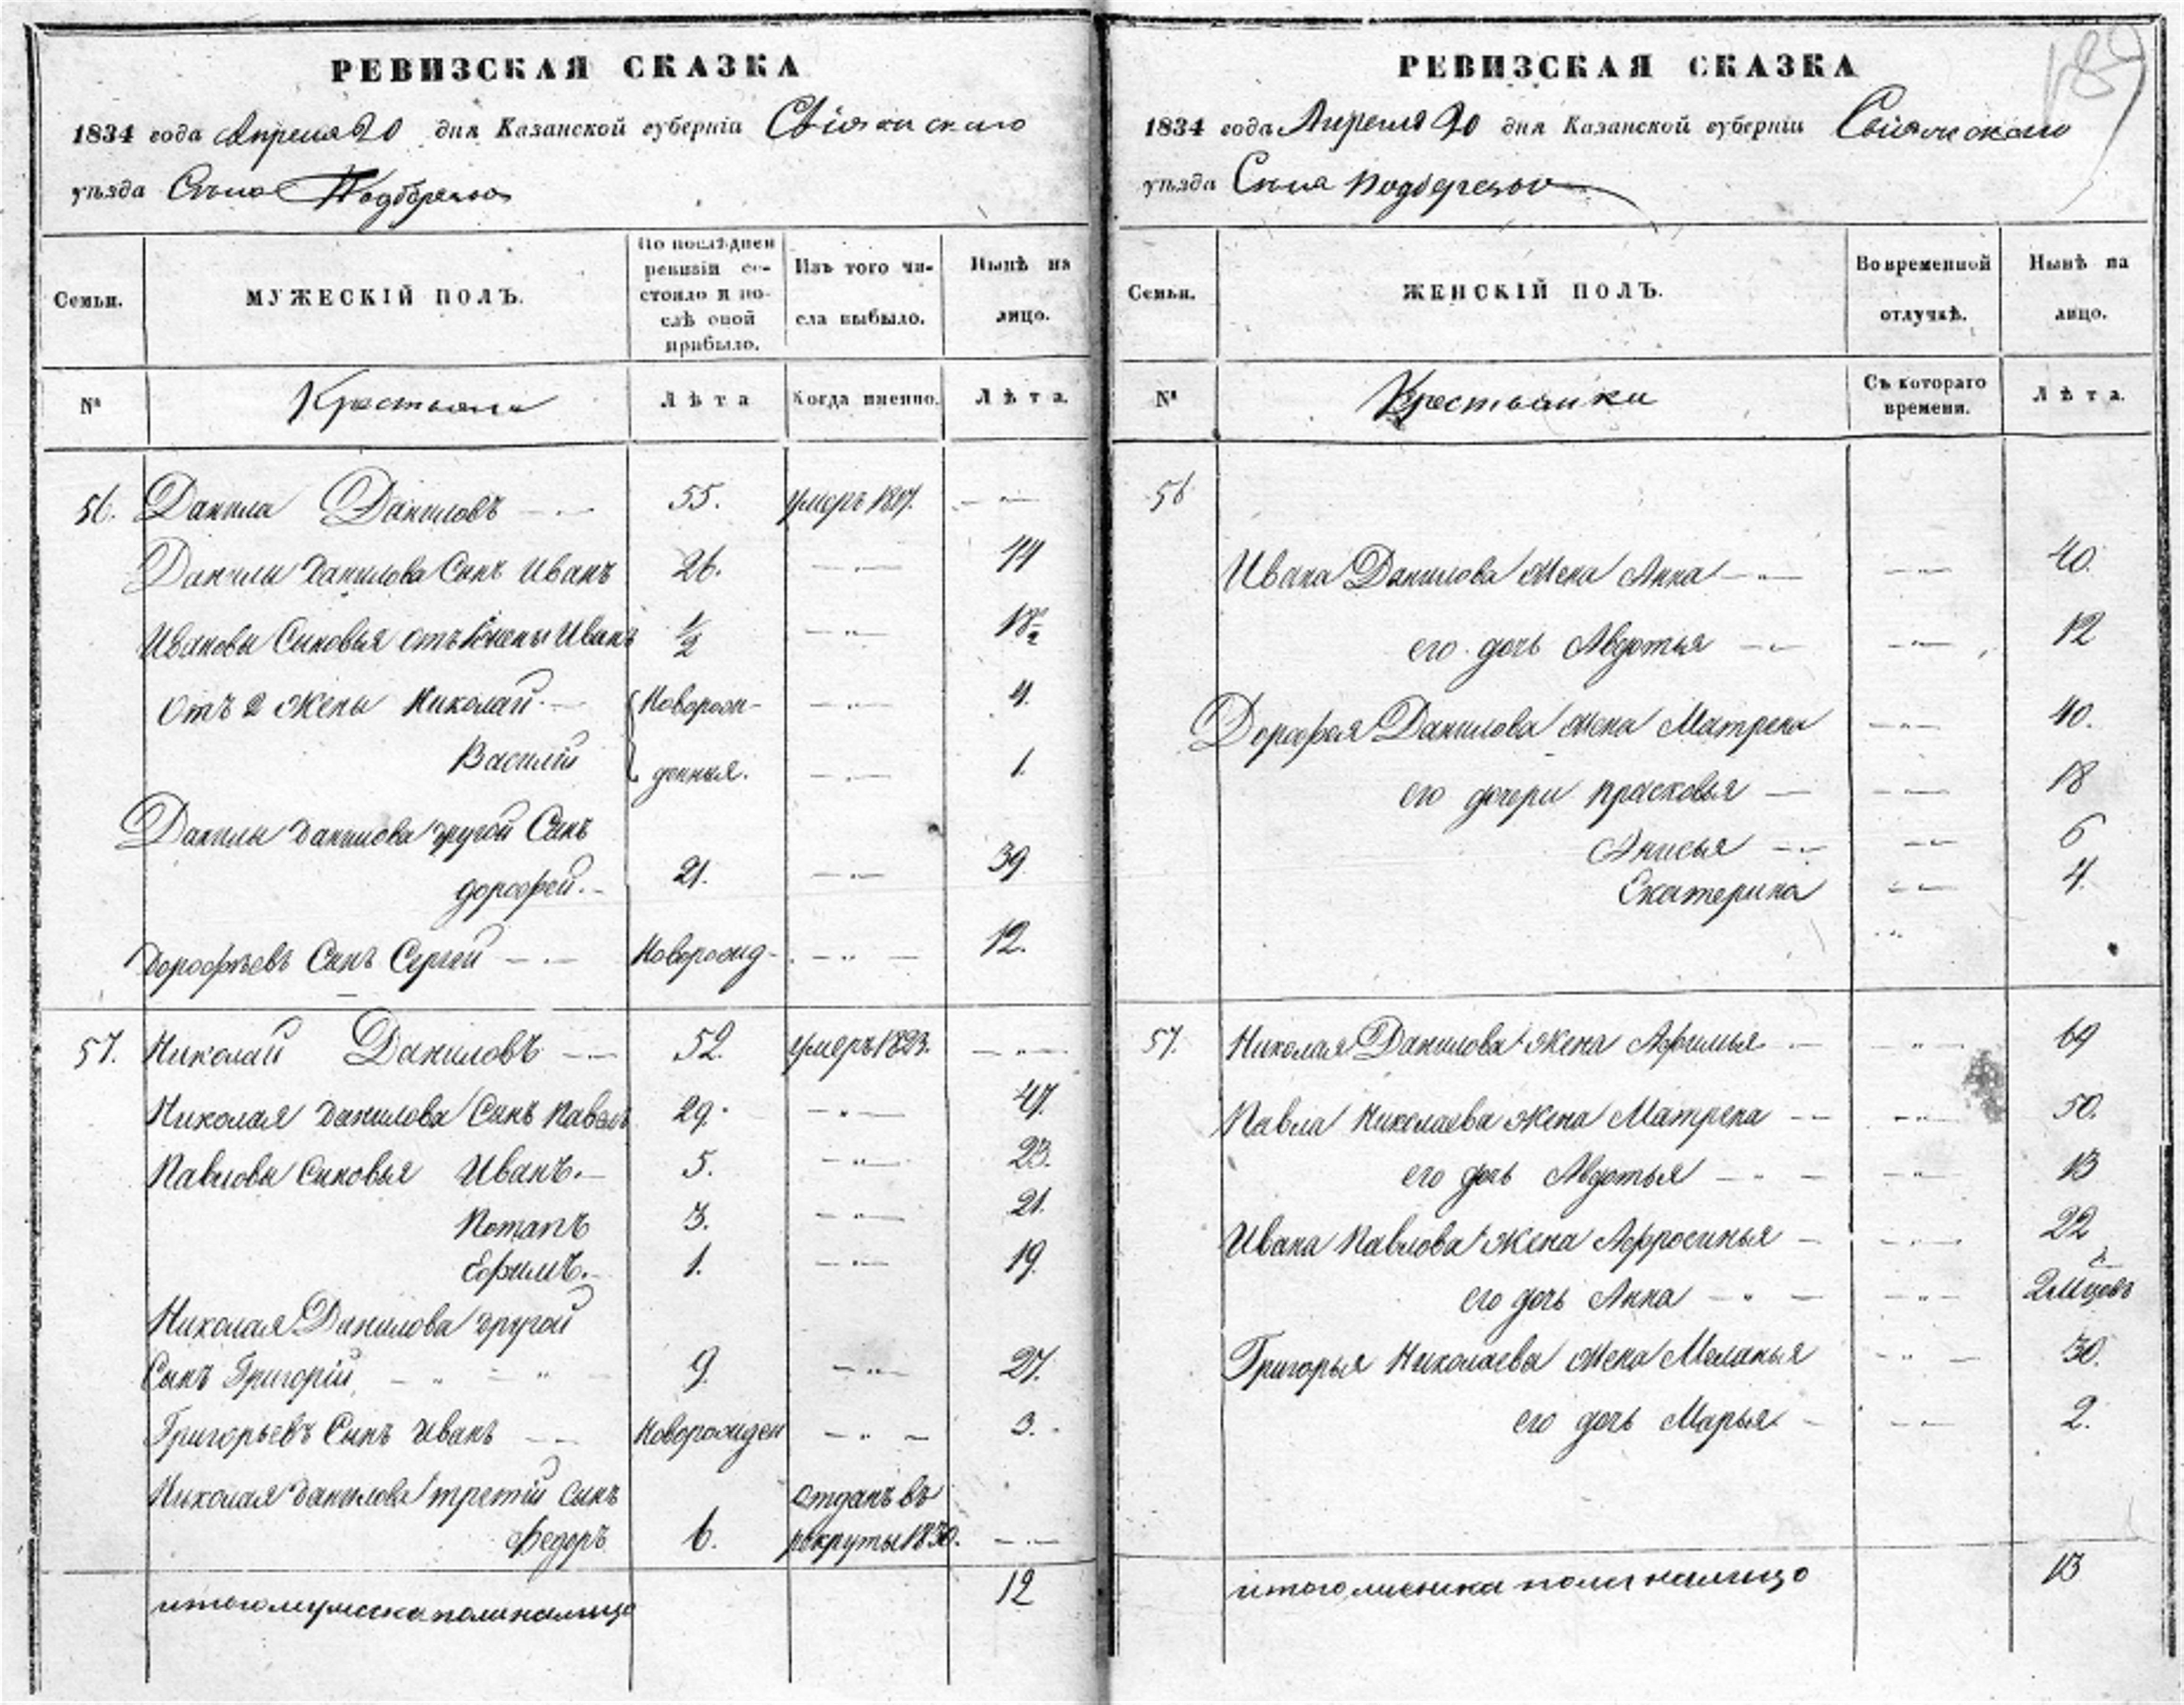 РЕВИЗСКАЯ СКАЗКА
1834 года Апреля 20 дня Казанской губерніи Свіяжскаго
уѣзда Села Подберезья
Семьи.
МУЖЕСКІЙ ПОЛЪ.
По послѣдней ревизіи состояло и послѣ оной прибыло.
Изъ того числа выбыло.
Нынѣ на лицо.
№
Крестьяне
Лѣта
Когда именно.
Лѣта.
56. Данила Даниловъ 55. умеръ 1817.
Данилы Данилова Сынъ Иванъ 26. 44
Ивановы Сыновья отъ 1 жены Иванъ ½ 18½
Отъ 2 жены Николай Новорож- 4.
Василій денныя. 1.
Данилы Данилова другой Сынъ
дорофей. 21. 39.
Дорофѣевъ Сынъ Сергей Новорожд- 12.
57. Николай Даниловъ 52. умеръ 1823.
Николая Данилова Сынъ Павелъ 29. 47.
Павловы Сыновья Иванъ. 5. 23.
Потапъ 3. 21.
Ефимъ. 1. 19.
Николая Данилова другой
Сынъ Григорій 9. 27.
Григорьевъ Сынъ Иванъ Новорожден 3.
Николая Данилова третій Сынъ отданъ въ
Федоръ 6. рекруты 1830.
итого мужска пола налицо 12
189
РЕВИЗСКАЯ СКАЗКА
1834 года Апреля 20 дня Казанской губерніи Свіяжскаго
уѣзда Села Подберезья
Семьи.
ЖЕНСКІЙ ПОЛЪ.
Во временной отлучкѣ.
Нынѣ на лицо.
№
Крестьянки
Съ котораго времени.
Лѣта.
56
Ивана Данилова жена Анна 40.
его дочь Авдотья 12
Дорофея Данилова жена Матрена 40.
его дочери Прасковья 18
Анисья 6
Екатерина 4.
57. Николая Данилова жена Афимья 69
Павла Николаева жена Матрена 50.
его дочь Авдотья 13
Ивана Павлова жена Афросинья 22
его дочь Анна 2 мцовъ
Григорья Николаева жена Меланья 30.
его дочь Марья 2.
итого женска пола налицо 13